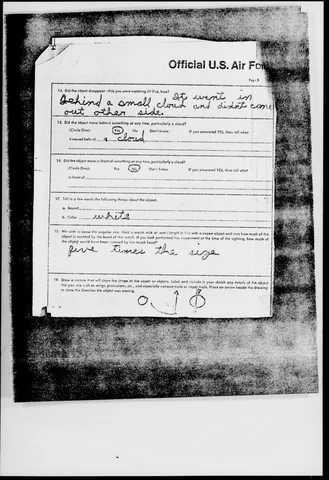 Official U.S. Air For
Page 5
14. Did the object disappear while you were watching it? If so, how? It went in
Behind a small cloud and didn't come
out other side.
15. Did the object move behind something at any time, particularly a cloud?
(Circle One): Yes No Don't Know. If you answered YES, then tell what
it moved behind a cloud
16. Did the object move in front of something at any time, particularly a cloud?
(Circle One): Yes No Don't Know. If you answered YES, then tell what
in front of
17. Tell in a few words the following things about the object:
a. Sound
b. Color white
18. We wish to know the angular size. Hold a match stick at arm's length in line with a known object and note how much of the
object is covered by the head of the match. If you had performed this experiment at the time of the sighting, how much of
the object would have been covered by the match head?
five times the size
19. Draw a picture that will show the shape of the object or objects. Label and include in your sketch any details of the object
that you saw such as wings, protrusions, etc., and especially exhaust trails or vapor trails. Place an arrow beside the drawing
to show the direction the object was moving.